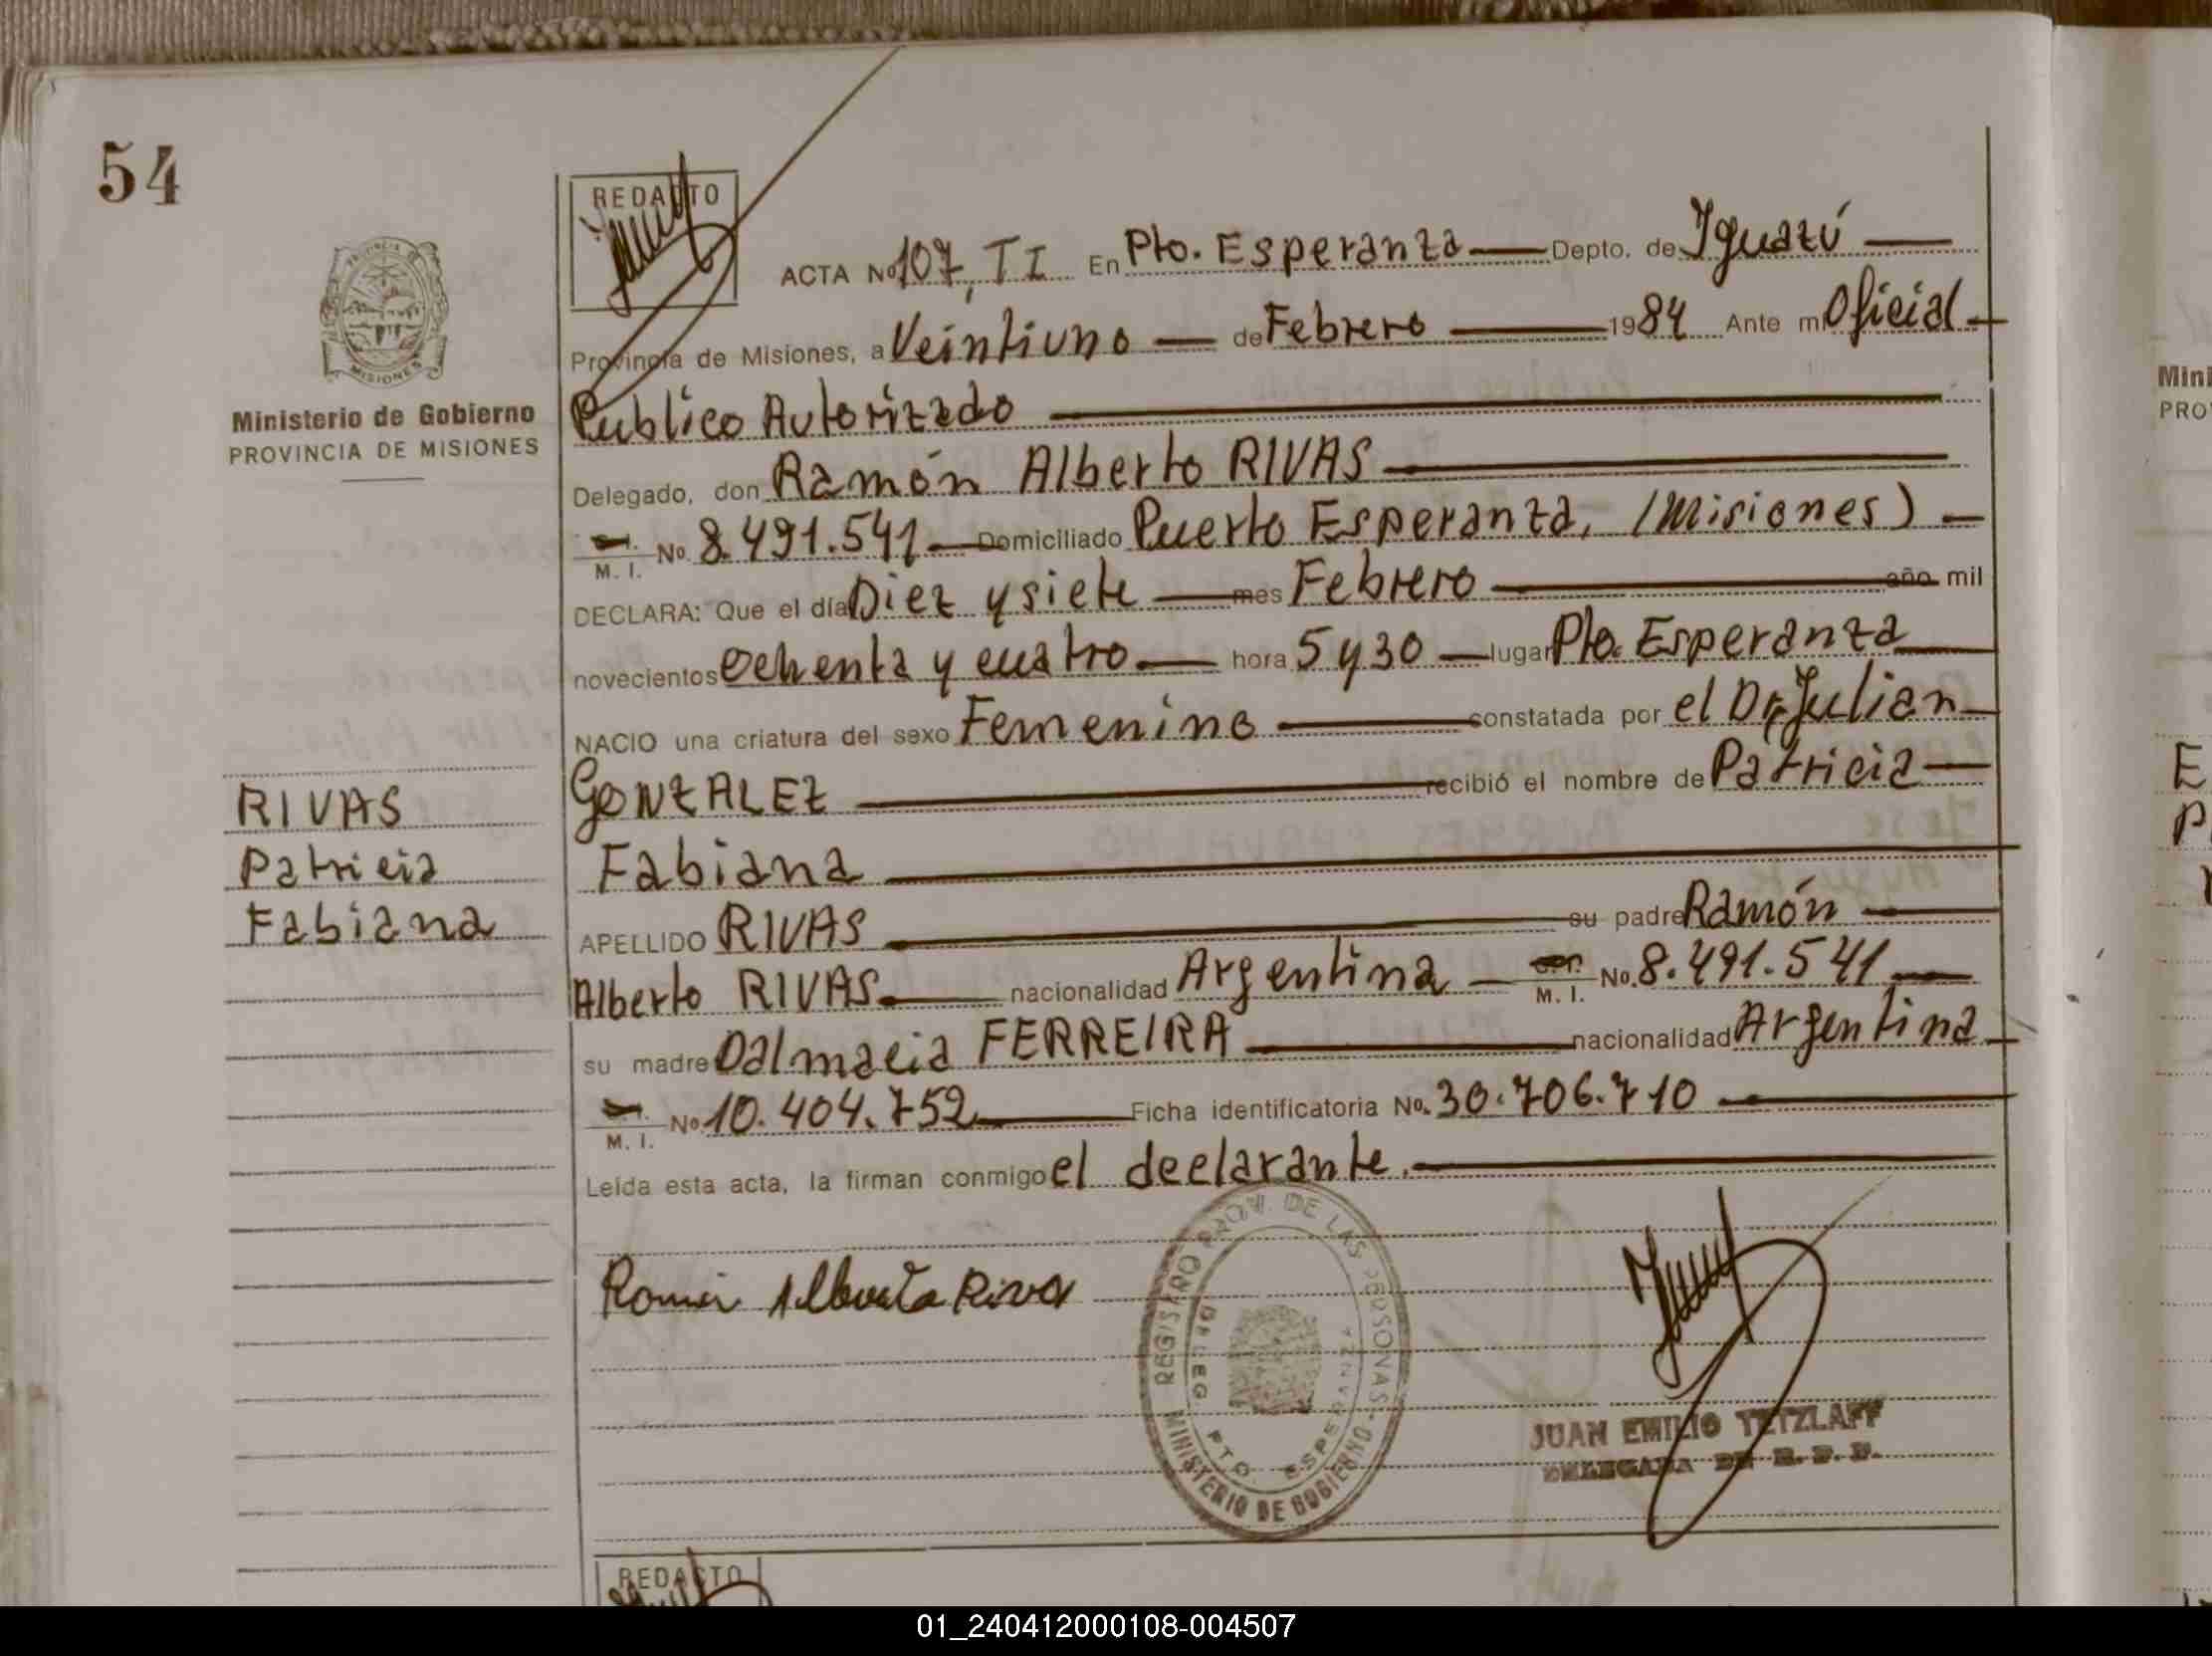 54
REDACTO
PROVINCIA
MISIONES
Ministerio de Gobierno
PROVINCIA DE MISIONES
RIVAS
Patricia
Fabiana
ACTA No 107, T I En Pto. Esperanza Depto. de Iguazú
Provincia de Misiones, a Veintiuno de Febrero 1984 Ante mi Oficial
Publico Autorizado
Delegado, don Ramón Alberto RIVAS
M. I. No. 8.491.541 Domiciliado Puerto Esperanza, (Misiones)
DECLARA: Que el día Diez y siete mes Febrero año mil
novecientos Ochenta y cuatro hora 5 y 30 lugar Pto. Esperanza
NACIO una criatura del sexo Femenino constatada por el Dr. Julian
GONZALEZ recibió el nombre de Patricia
Fabiana
APELLIDO RIVAS su padre Ramón
Alberto RIVAS nacionalidad Argentina M. I. No. 8.491.541
su madre Dalmacia FERREIRA nacionalidad Argentina
M. I. No 10.404.752 Ficha identificatoria No. 30.706.710
Leída esta acta, la firman conmigo el declarante.
REGISTRO PROV. DE LAS PERSONAS
DELEG. PTO. ESPERANZA
MINISTERIO DE GOBIERNO
JUAN EMILIO TETZLAFF
REDACTO
Mini
PRO
E
P
01_240412000108-004507